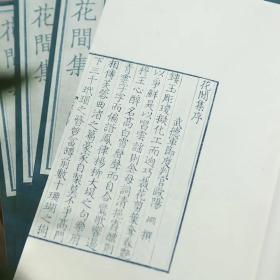 花間集
花間集
花間集
花間集序
武德軍節度判官歐陽炯撰
鏤玉彫瓊擬化工而迥巧裁花剪葉奪春豔
以爭鮮是以唱雲謠則金母詞清挹霞醴則
穆王心醉名高白雪聲聲而自合鸞歌響遏
行雲字字而偏諧鳳律楊柳大堤之句樂府
相傳芙蓉曲渚之篇豪家自製莫不爭高門
下三千玳瑁之簪競富罇前數十珊瑚之樹